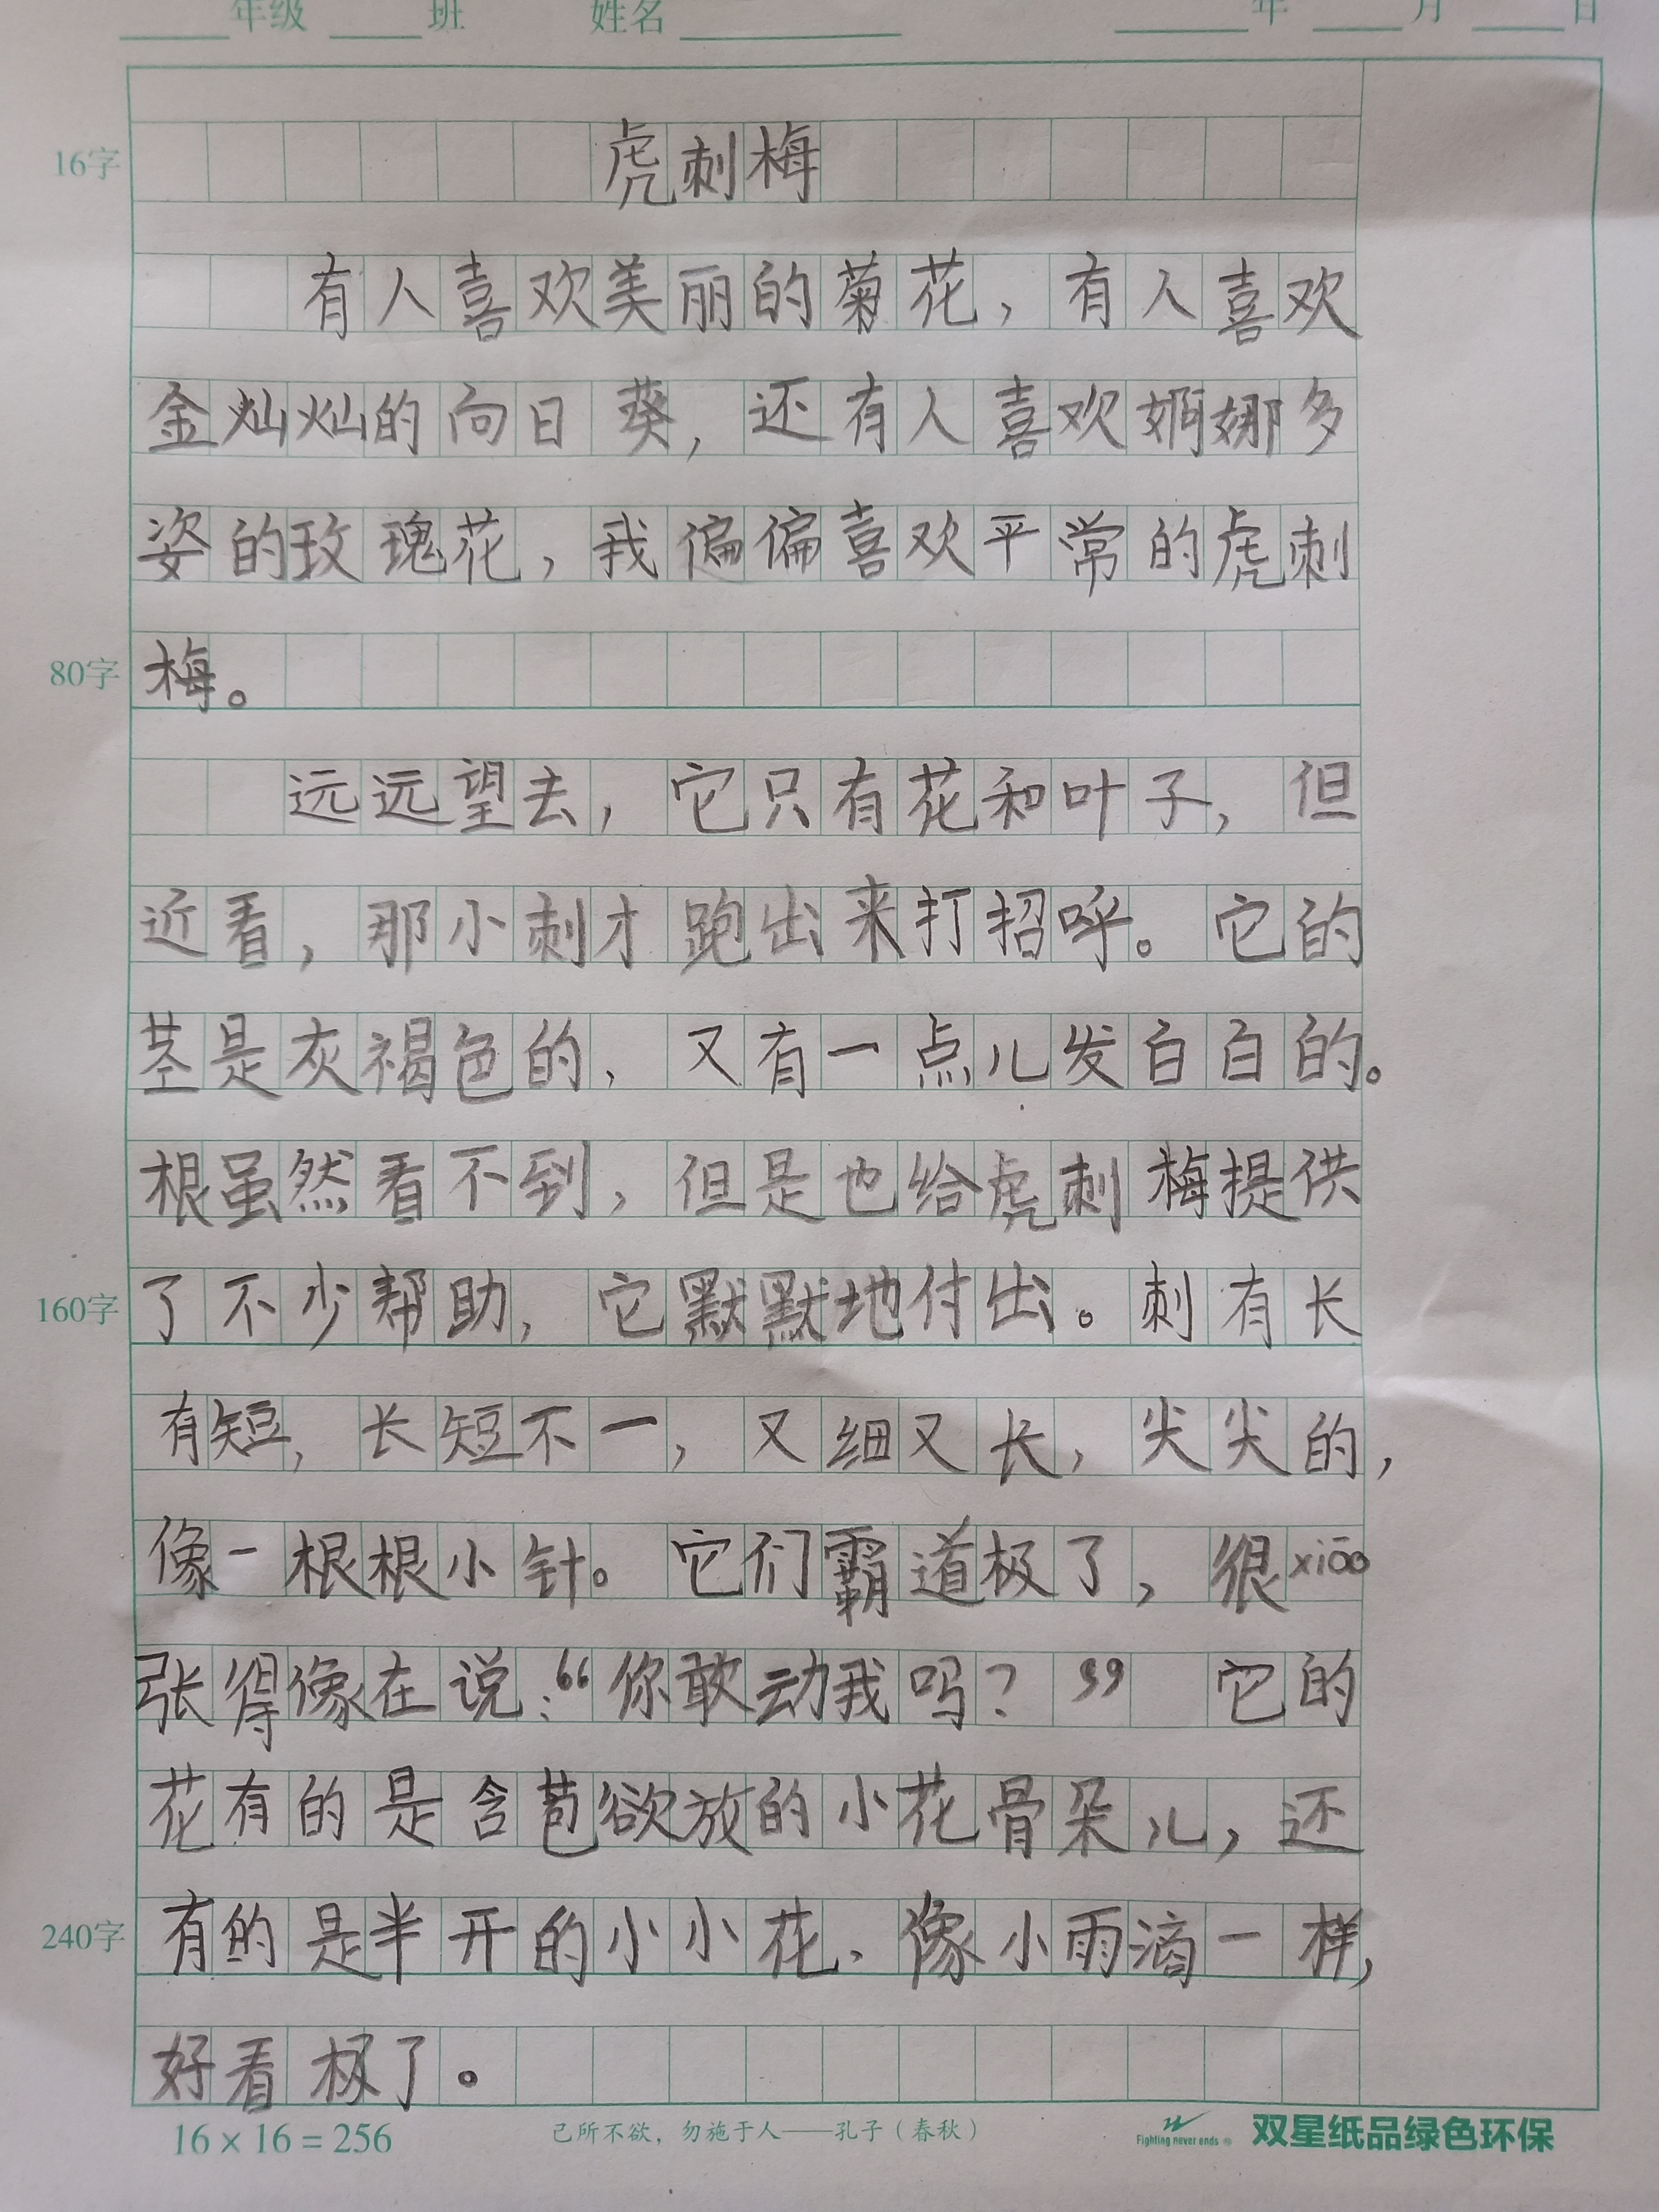 年级 班 姓名 年 月 日
16字 虎刺梅
有人喜欢美丽的菊花，有人喜欢
金灿灿的向日葵，还有人喜欢婀娜多
姿的玫瑰花，我偏偏喜欢平常的虎刺
80字 梅。
远远望去，它只有花和叶子，但
近看，那小刺才跑出来打招呼。它的
茎是灰褐色的，又有一点儿发白白的。
根虽然看不到，但是也给虎刺梅提供
160字 了不少帮助，它默默地付出。刺有长
有短，长短不一，又细又长，尖尖的，
像一根根小针。它们霸道极了，很xiāo
张得像在说：“你敢动我吗？” 它的
花有的是含苞欲放的小花骨朵儿，还
240字 有的是半开的小小花，像小雨滴一样，
好看极了。
16×16=256 己所不欲，勿施于人——孔子（春秋） Fighting never ends 双星纸品绿色环保